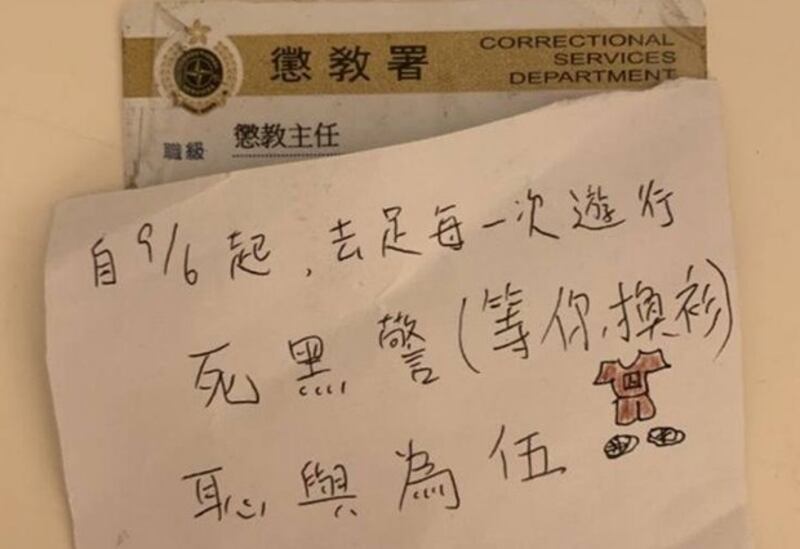 懲教署
CORRECTIONAL
SERVICES
DEPARTMENT
職級 懲教主任
自9/6起，去足每一次遊行
死黑警(等你換衫)
囚
恥與為伍